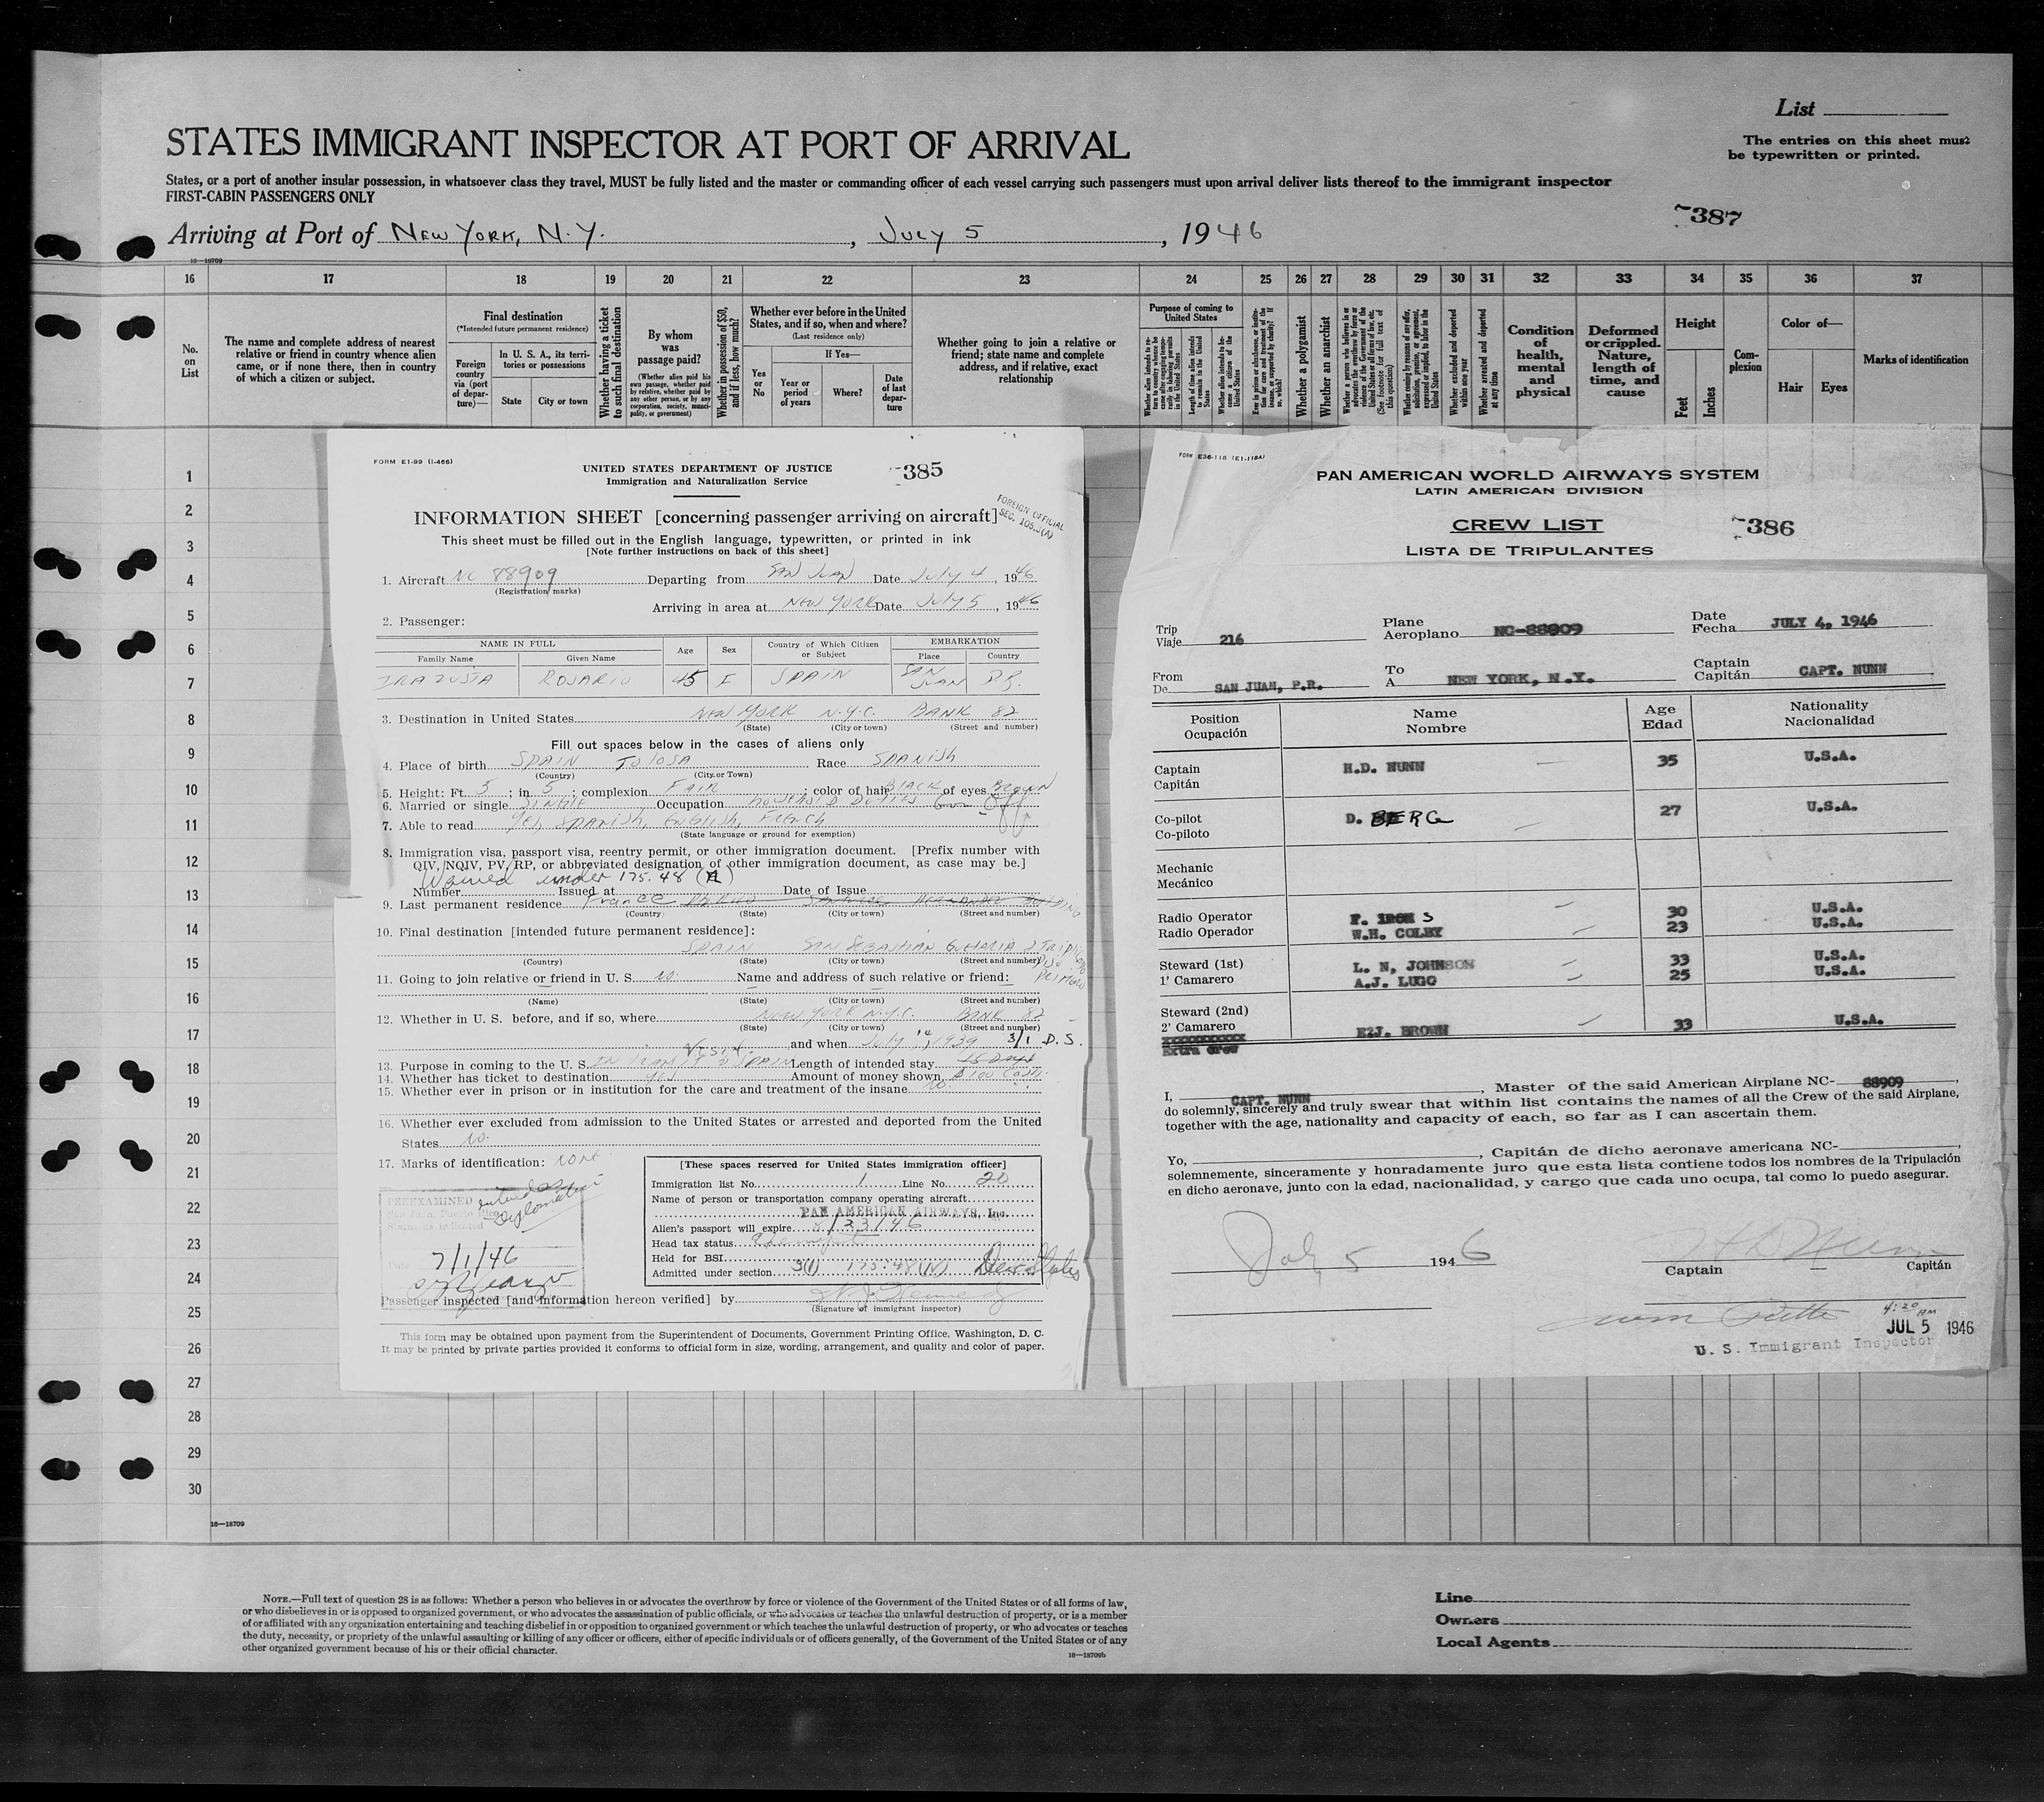 List
The entries on this sheet must
be typewritten or printed.
STATES IMMIGRANT INSPECTOR AT PORT OF ARRIVAL
States, or a port of another insular possession, in whatsoever class they travel, MUST be fully listed and the master or commanding officer of each vessel carrying such passengers must upon arrival deliver lists thereof to the immigrant inspector
FIRST-CABIN PASSENGERS ONLY
387
Arriving at Port of NEW YORK, N.Y. , JULY 5 , 1946
16—18709
16 17 18 19 20 21 22 23 24 25 26 27 28 29 30 31 32 33 34 35 36 37
No. on List
The name and complete address of nearest
relative or friend in country whence alien
came, or if none there, then in country
of which a citizen or subject.
Final destination
(*Intended future permanent residence)
Foreign country via (port of departure)—
In U. S. A., its territories or possessions
State
City or town
Whether having a ticket to such final destination
By whom was passage paid?
(Whether alien paid his own passage, whether paid by relative, whether paid by any other person, or by any corporation, society, municipality, or government)
Whether in possession of $50, and if less, how much?
Whether ever before in the United States, and if so, when and where?
(Last residence only)
Yes or No
If Yes—
Year or period of years
Where?
Date of last departure
Whether going to join a relative or
friend; state name and complete
address, and if relative, exact
relationship
Purpose of coming to United States
Whether a polygamist
Whether an anarchist
Whether excluded and deported within one year
Whether arrested and deported at any time
Condition of health, mental and physical
Deformed or crippled. Nature, length of time, and cause
Height
Feet
Inches
Complexion
Color of—
Hair
Eyes
Marks of identification
1
2
3
4
5
6
7
8
9
10
11
12
13
14
15
16
17
18
19
20
21
22
23
24
25
26
27
28
29
30
16—18709
FORM E1-99 (I-466)
UNITED STATES DEPARTMENT OF JUSTICE
Immigration and Naturalization Service
385
FOREIGN OFFICIAL
INFORMATION SHEET [concerning passenger arriving on aircraft]
This sheet must be filled out in the English language, typewritten, or printed in ink
[Note further instructions on back of this sheet]
1. Aircraft NC 88909 Departing from SAN JUAN Date JULY 4, 1946
(Registration marks)
Arriving in area at NEW YORK Date JULY 5, 1946
2. Passenger:
NAME IN FULL Age Sex Country of Which Citizen or Subject EMBARKATION
Family Name Given Name Place Country
IRAZUSTA ROSARIO 45 F SPAIN SAN JUAN P.R.
3. Destination in United States NEW YORK N.Y.C. BANK 82
(State) (City or town) (Street and number)
Fill out spaces below in the cases of aliens only
4. Place of birth SPAIN TOLOSA Race SPANISH
(Country) (City or Town)
5. Height: Ft. 5 ; in 5 ; complexion FAIR ; color of hair BLACK of eyes BROWN
6. Married or single SINGLE Occupation HOUSEHOLD DUTIES
7. Able to read YES, SPANISH, ENGLISH, FRENCH
(State language or ground for exemption)
8. Immigration visa, passport visa, reentry permit, or other immigration document. [Prefix number with
QIV, NQIV, PV, RP, or abbreviated designation of other immigration document, as case may be.]
Waived under 175.48
Number Issued at Date of Issue
9. Last permanent residence France
(Country) (State) (City or town) (Street and number)
10. Final destination [intended future permanent residence]:
SPAIN SAN SEBASTIAN GUETARIA 2
(Country) (State) (City or town) (Street and number)
11. Going to join relative or friend in U. S. NO. Name and address of such relative or friend:
(Name) (State) (City or town) (Street and number)
12. Whether in U. S. before, and if so, where NEW YORK N.Y.C. BANK 82
(State) (City or town) (Street and number)
and when July 14, 1939 3/1 D.S.
13. Purpose in coming to the U. S. IN TRANSIT SPAIN Length of intended stay 15 Days
14. Whether has ticket to destination YES Amount of money shown $100 Cash
15. Whether ever in prison or in institution for the care and treatment of the insane NO
16. Whether ever excluded from admission to the United States or arrested and deported from the United
States NO.
17. Marks of identification: NONE
PREEXAMINED
San Juan, Puerto Rico
Status as indicated
7/1/46
[These spaces reserved for United States immigration officer]
Immigration list No. 1 Line No. 20
Name of person or transportation company operating aircraft
PAN AMERICAN AIRWAYS, Inc.
Alien's passport will expire 8/23/46
Head tax status
Held for BSI
Admitted under section 3(1) 175.48(N)
Passenger inspected [and information hereon verified] by
(Signature of immigrant inspector)
This form may be obtained upon payment from the Superintendent of Documents, Government Printing Office, Washington, D. C.
It may be printed by private parties provided it conforms to official form in size, wording, arrangement, and quality and color of paper.
FORM E36-118 (E1-118A)
PAN AMERICAN WORLD AIRWAYS SYSTEM
LATIN AMERICAN DIVISION
CREW LIST
386
LISTA DE TRIPULANTES
Trip Viaje 216 Plane Aeroplano NC-88909 Date Fecha JULY 4, 1946
From De SAN JUAN, P.R. To A NEW YORK, N.Y. Captain Capitán CAPT. NUNN
Position Ocupación Name Nombre Age Edad Nationality Nacionalidad
Captain Capitán H.D. NUNN 35 U.S.A.
Co-pilot Co-piloto D. BERG 27 U.S.A.
Mechanic Mecánico
Radio Operator F. IRONS 30 U.S.A.
Radio Operador W.H. COLBY 23 U.S.A.
Steward (1st) L. N, JOHNSON 33 U.S.A.
1' Camarero A.J. LUGO 25 U.S.A.
Steward (2nd)
2' Camarero EZJ. BROWN 33 U.S.A.
xxxxxxxxxxx
Extra Crew
I, CAPT. NUNN , Master of the said American Airplane NC- 88909 ,
do solemnly, sincerely and truly swear that within list contains the names of all the Crew of the said Airplane,
together with the age, nationality and capacity of each, so far as I can ascertain them.
Yo, , Capitán de dicho aeronave americana NC- ,
solemnemente, sinceramente y honradamente juro que esta lista contiene todos los nombres de la Tripulación
en dicho aeronave, junto con la edad, nacionalidad, y cargo que cada uno ocupa, tal como lo puedo asegurar.
July 5 1946 H D Nunn
Captain — Capitán
4:20 AM
JUL 5 1946
U. S. Immigrant Inspector
NOTE.—Full text of question 28 is as follows: Whether a person who believes in or advocates the overthrow by force or violence of the Government of the United States or of all forms of law,
or who disbelieves in or is opposed to organized government, or who advocates the assassination of public officials, or who advocates or teaches the unlawful destruction of property, or is a member
of or affiliated with any organization entertaining and teaching disbelief in or opposition to organized government or which teaches the unlawful destruction of property, or who advocates or teaches
the duty, necessity, or propriety of the unlawful assaulting or killing of any officer or officers, either of specific individuals or of officers generally, of the Government of the United States or of any
other organized government because of his or their official character.
16—18709b
Line
Owners
Local Agents